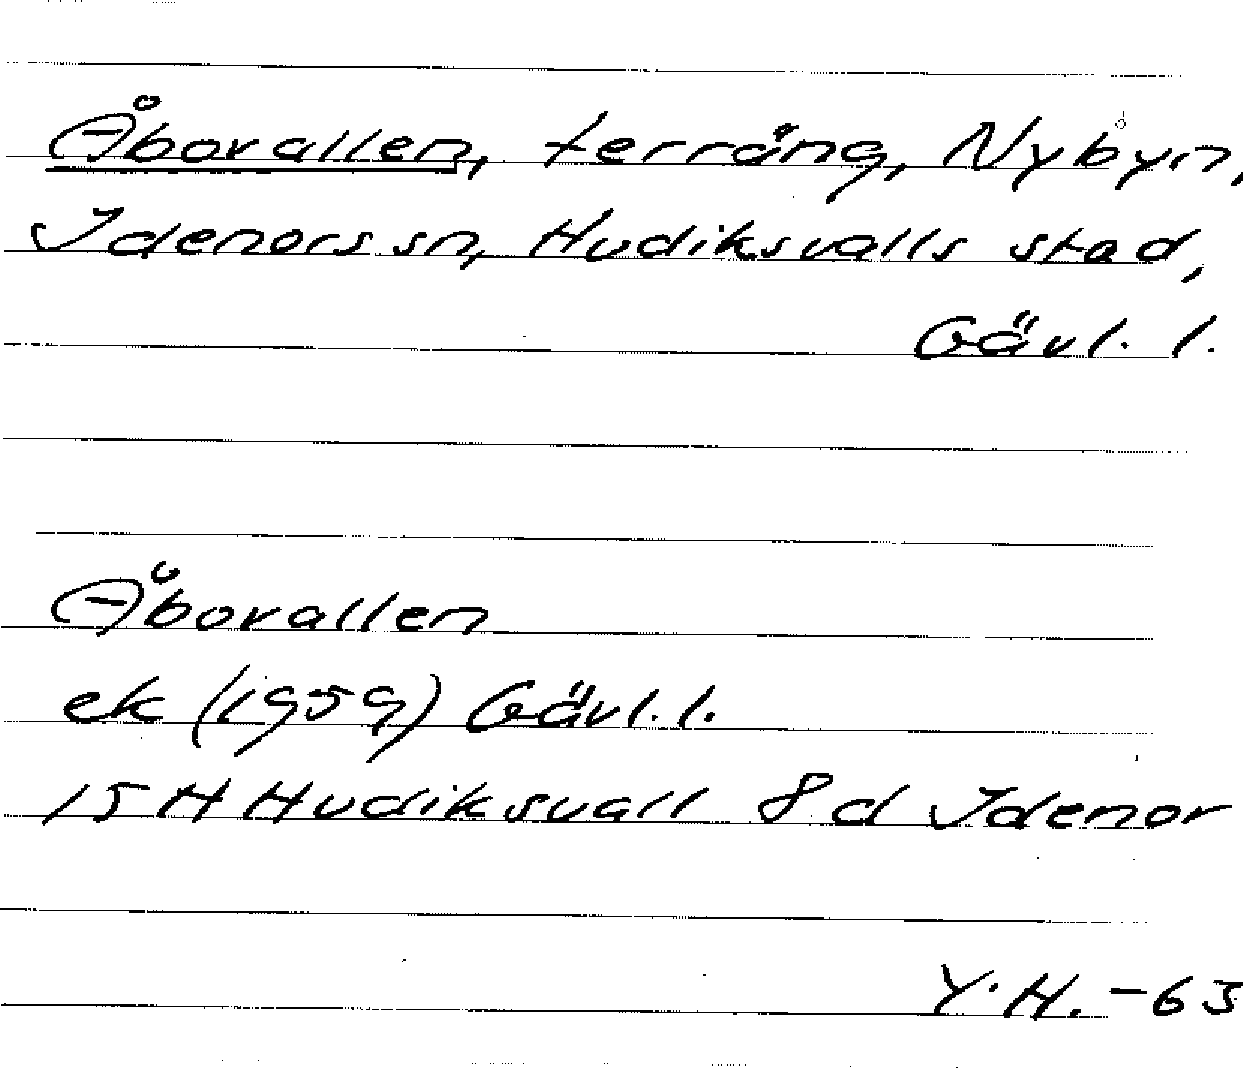 Åborvallen, terräng, Nybyn,
Idenors sn, Hudiksvalls stad,
Gävl. l.
Åborvallen
ek (1959) Gävl. l.
15 H Hudiksvall 8 d Idenor
Y. H. -63